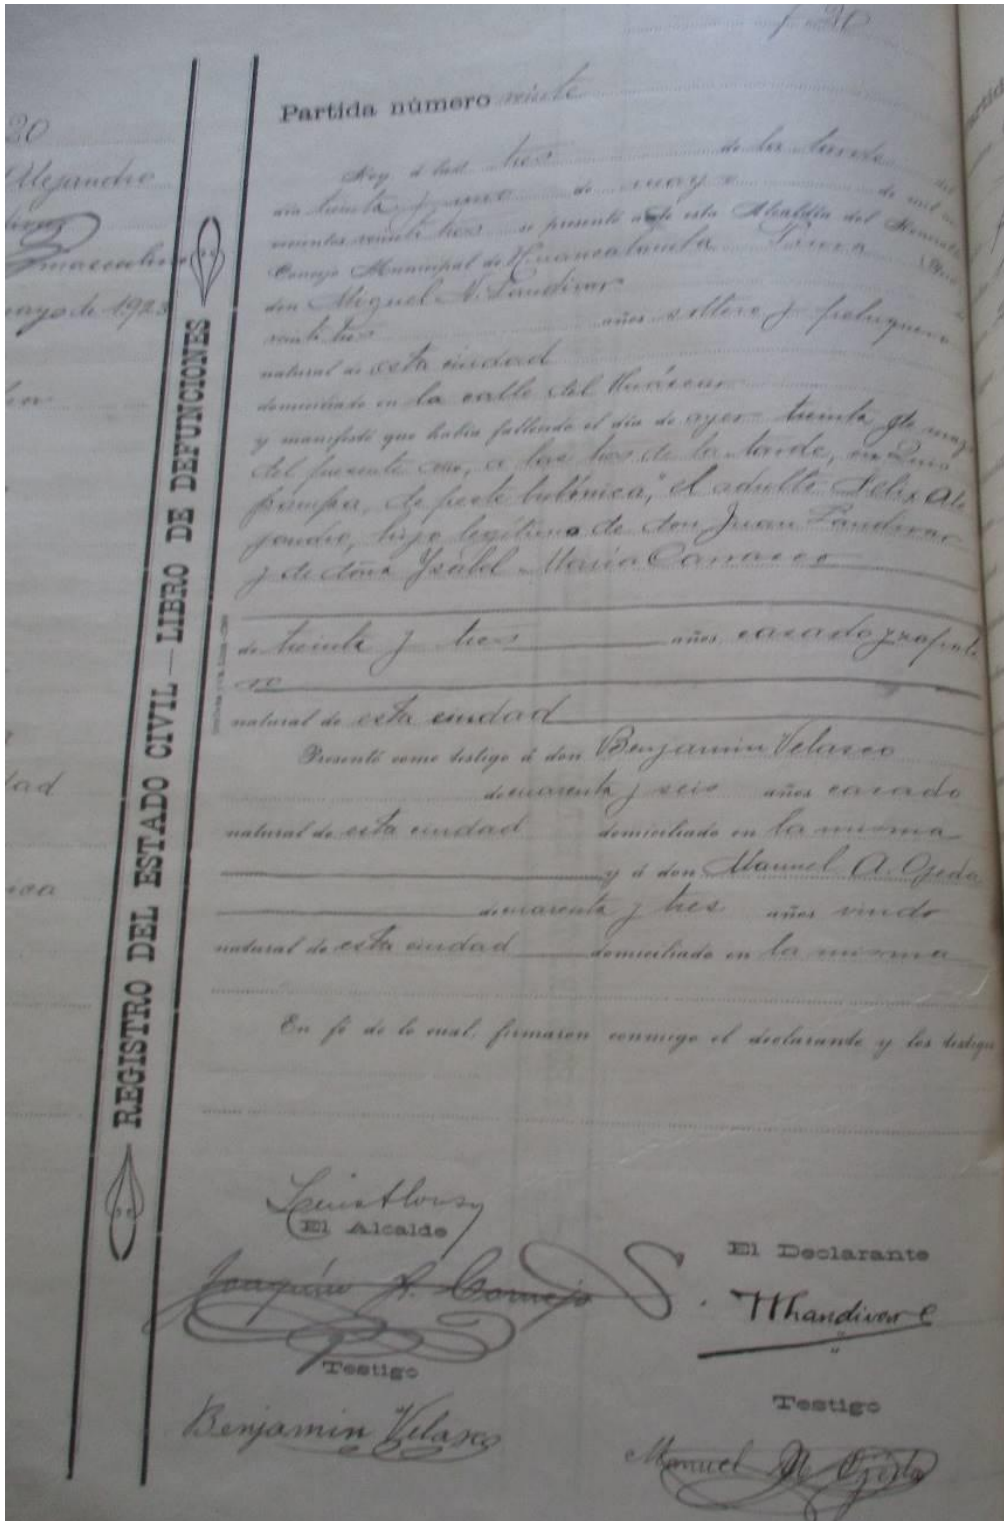 20
Alejandro
masculino
mayo de 1923
REGISTRO DEL ESTADO CIVIL — LIBRO DE DEFUNCIONES
Partida número veinte
Hoy á las tres de la tarde del
día treinta y uno de mayo de mil no
vecientos veinti tres se presentó ante esta Alcaldía del Honorable
Concejo Municipal de Huancabamba Piura
don Miguel N. Landivar de
veinti tres años soltero y peluquero
natural de esta ciudad
domiciliado en la calle del Huáscar
y manifestó que había fallecido el día de ayer treinta de mayo
del presente año, a las tres de la tarde, en Quis
pampa, de peste bubónica, el adulto Felix Ale
jandro, hijo legítimo de don Juan Landivar
y de doña Ysabel María Carrasco
de treinta y tres años casado y zapate
ro
natural de esta ciudad
Presentó como testigo á don Benjamin Velasco
de cuarenta y seis años casado
natural de esta ciudad domiciliado en la misma
y á don Manuel A. Ojeda
de cuarenta y tres años viudo
natural de esta ciudad domiciliado en la misma
En fé de lo cual, firmaron conmigo el declarante y los testigos
El Alcalde
Joaquín A. Cornejo S.
El Declarante
MLandivar C
Testigo
Benjamin Velasco
Testigo
Manuel A Ojeda